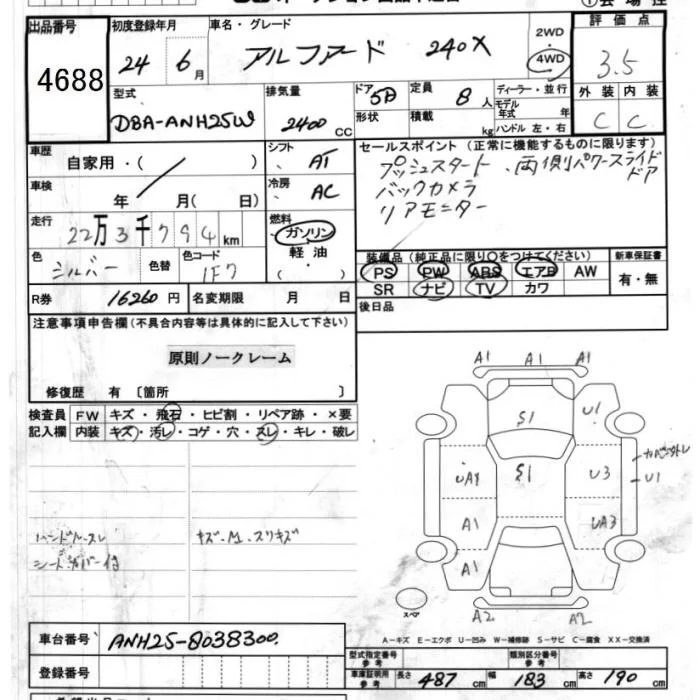 出品番号
4688
初度登録年月
24 6月
車名・グレード
アルファード 240X
2WD
・
4WD
評価点
3.5
外装 内装
C C
型式
DBA-ANH25W
排気量
2400 CC
ドア 5D
形状
定員 8人
積載 kg
ディーラー・並行
モデル
年式 年
ハンドル 左・右
車歴
自家用・( )
車検
年 月( 日)
シフト AT
冷房 AC
走行
22万3千794km
燃料
ガソリン
軽油
( )
色
シルバー
色替
色コード
1F7
R券 16260円
名変期限 月 日
セールスポイント(正常に機能するものに限ります)
プッシュスタート 両側パワースライドドア
バックカメラ
リアモニター
装備品(純正品に限り○をつけてください)
PS PW ABS エアB AW
SR ナビ TV カワ
新車保証書
有・無
後日品
注意事項申告欄(不具合内容等は具体的に記入して下さい)
原則ノークレーム
修復歴 有 〔箇所 〕
検査員
記入欄
FW キズ・飛石・ヒビ割・リペア跡・×要
内装 キズ・汚レ・コゲ・穴・スレ・キレ・破レ
ハンドルスレ
シートカバー付
キズ・M.スリキズ
A1 A1 A1
S1 U1
UA1 S1 U3
U1
A1 UA3
A1
A2 A2
スペア
A-キズ E-エクボ U-凹み W-補修跡 S-サビ C-腐食 XX-交換済
車台番号 ANH25-8038300
登録番号
型式指定番号
参考
類別区分番号
参考
車庫証明用
参考
長さ 487 cm 幅 183 cm 高さ 190 cm